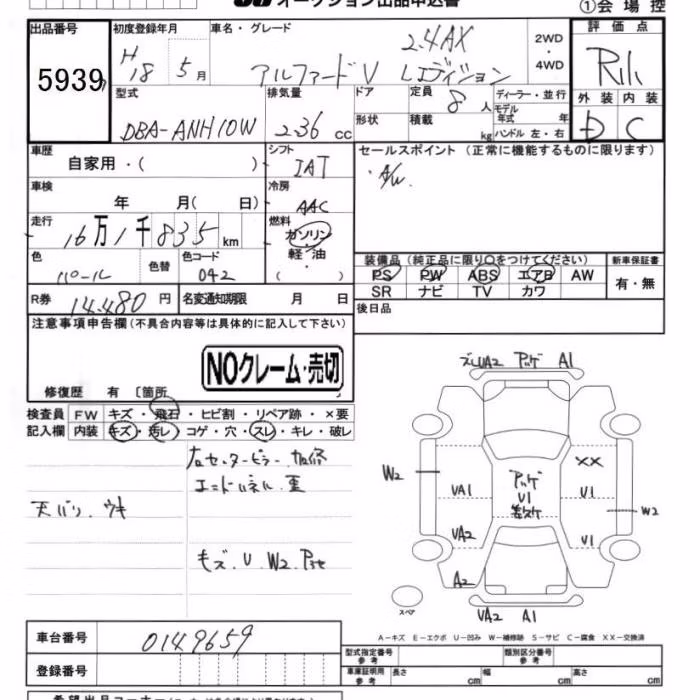 オークション出品申込書
①会場控
出品番号
5939
初度登録年月
H18 5月
車名・グレード
2.4AX
アルファードV Lエディション
2WD
・
4WD
評価点
外装 内装
D C
型式
DBA-ANH10W
排気量
2.36 cc
ドア
形状
定員 8 人
積載 kg
ディーラー・並行
モデル
年式 年
ハンドル 左・右
車歴
自家用・( )
シフト
IAT
セールスポイント (正常に機能するものに限ります)
・A/W
車検
年 月( 日)
冷房
AAC
走行
16万1千835km
燃料
ガソリン
・
軽油
( )
色
パール
色替
色コード
042
装備品 (純正品に限り○をつけてください)
PS PW ABS エアB AW
SR ナビ TV カワ
新車保証書
有・無
R券 14,480 円
名変通知期限 月 日
後日品
注意事項申告欄 (不具合内容等は具体的に記入して下さい)
NOクレーム・売切
修復歴 有 〔箇所
検査員
記入欄
FW キズ・飛石・ヒビ割・リペア跡・×要
内装 キズ・汚レ・コゲ・穴・スレ・キレ・破レ
右センターピラー 加修
エンドパネル 歪
天バリ、ウキ
キズ、U、W2、アセ
ズレUA2 アッゲ A1
W2
XX
アッゲ
UA1
U1
U1
W2
UA2
U1
A2
スペア
UA2 A1
A-キズ E-エクボ U-凹み W-補修跡 S-サビ C-腐食 XX-交換済
車台番号
0149659
登録番号
型式指定番号
参考
類別区分番号
参考
車庫証明用
参考
長さ cm 幅 cm 高さ cm